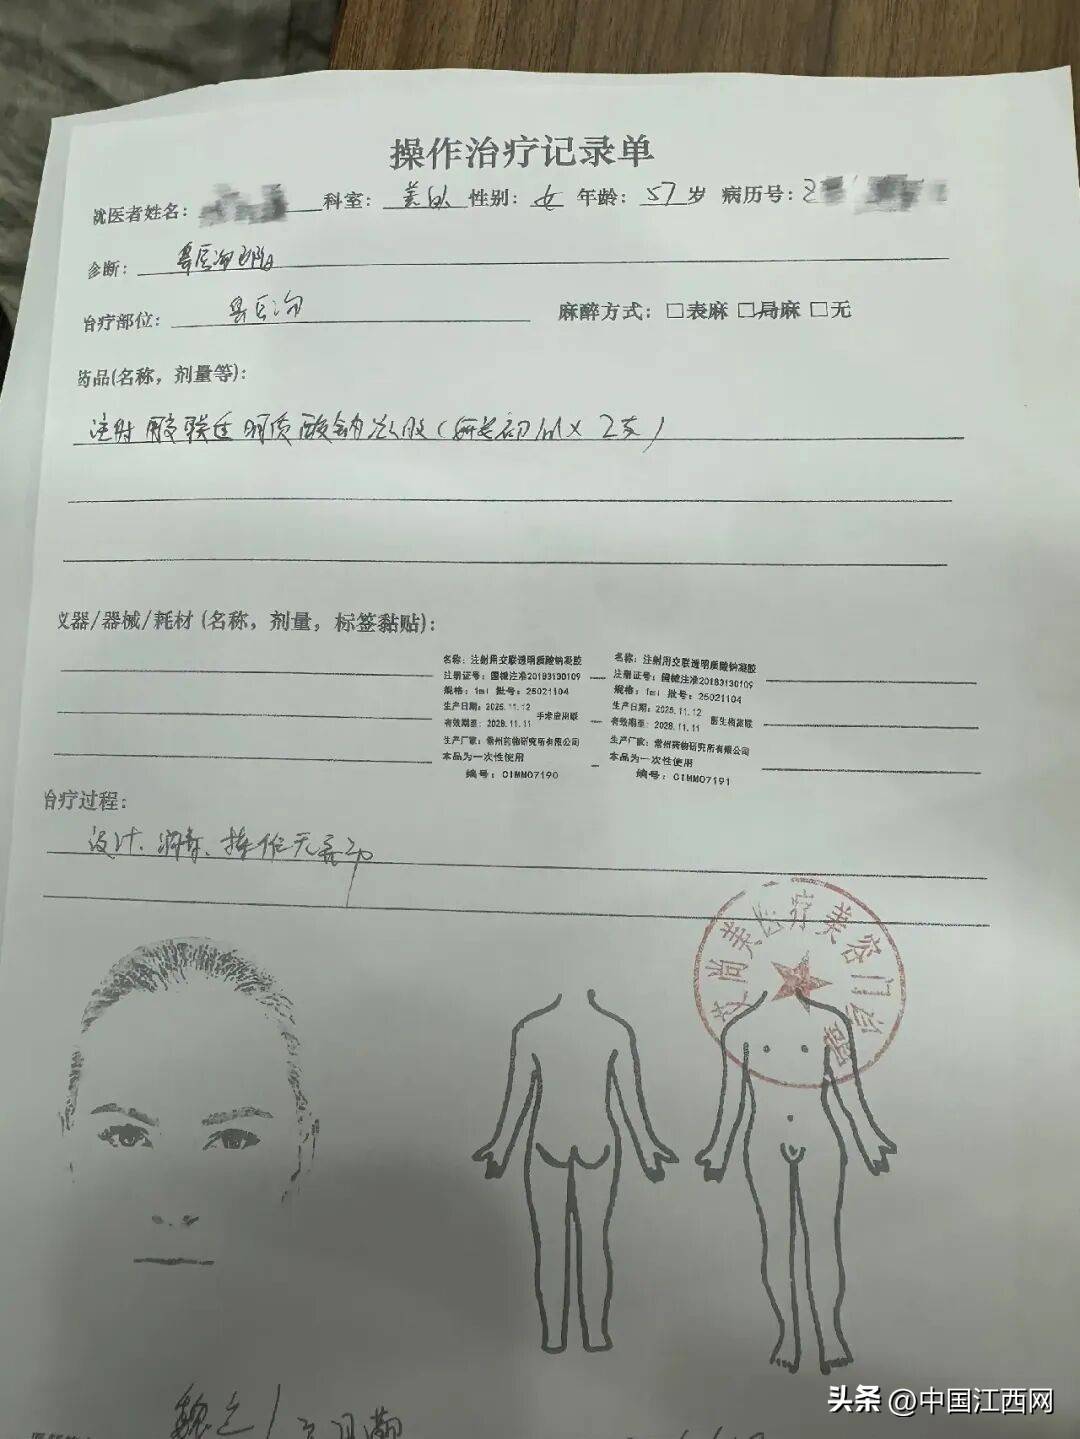 操作治疗记录单
就医者姓名： 科室：美肤 性别：女 年龄：57岁 病历号：2
诊断：鼻唇沟凹陷
治疗部位：鼻唇沟 麻醉方式：□表麻 □局麻 □无
药品(名称，剂量等)：
注射用交联透明质酸钠凝胶( 1ml×2支)
仪器/器械/耗材(名称，剂量，标签黏贴)：
名称：注射用交联透明质酸钠凝胶 名称：注射用交联透明质酸钠凝胶
注册证号：国械注准20193130109 注册证号：国械注准20193130109
规格：1ml 批号：25021104 规格：1ml 批号：25021104
生产日期：2025.11.12 生产日期：2025.11.12
有效期至：2028.11.11 有效期至：2028.11.11
生产厂家：常州药物研究所有限公司 生产厂家：常州药物研究所有限公司
本品为一次性使用 本品为一次性使用
编号：CIMM07190 编号：CIMM07191
治疗过程：
设计、消毒、操作无
艾尚美医疗美容门诊部
头条 @中国江西网